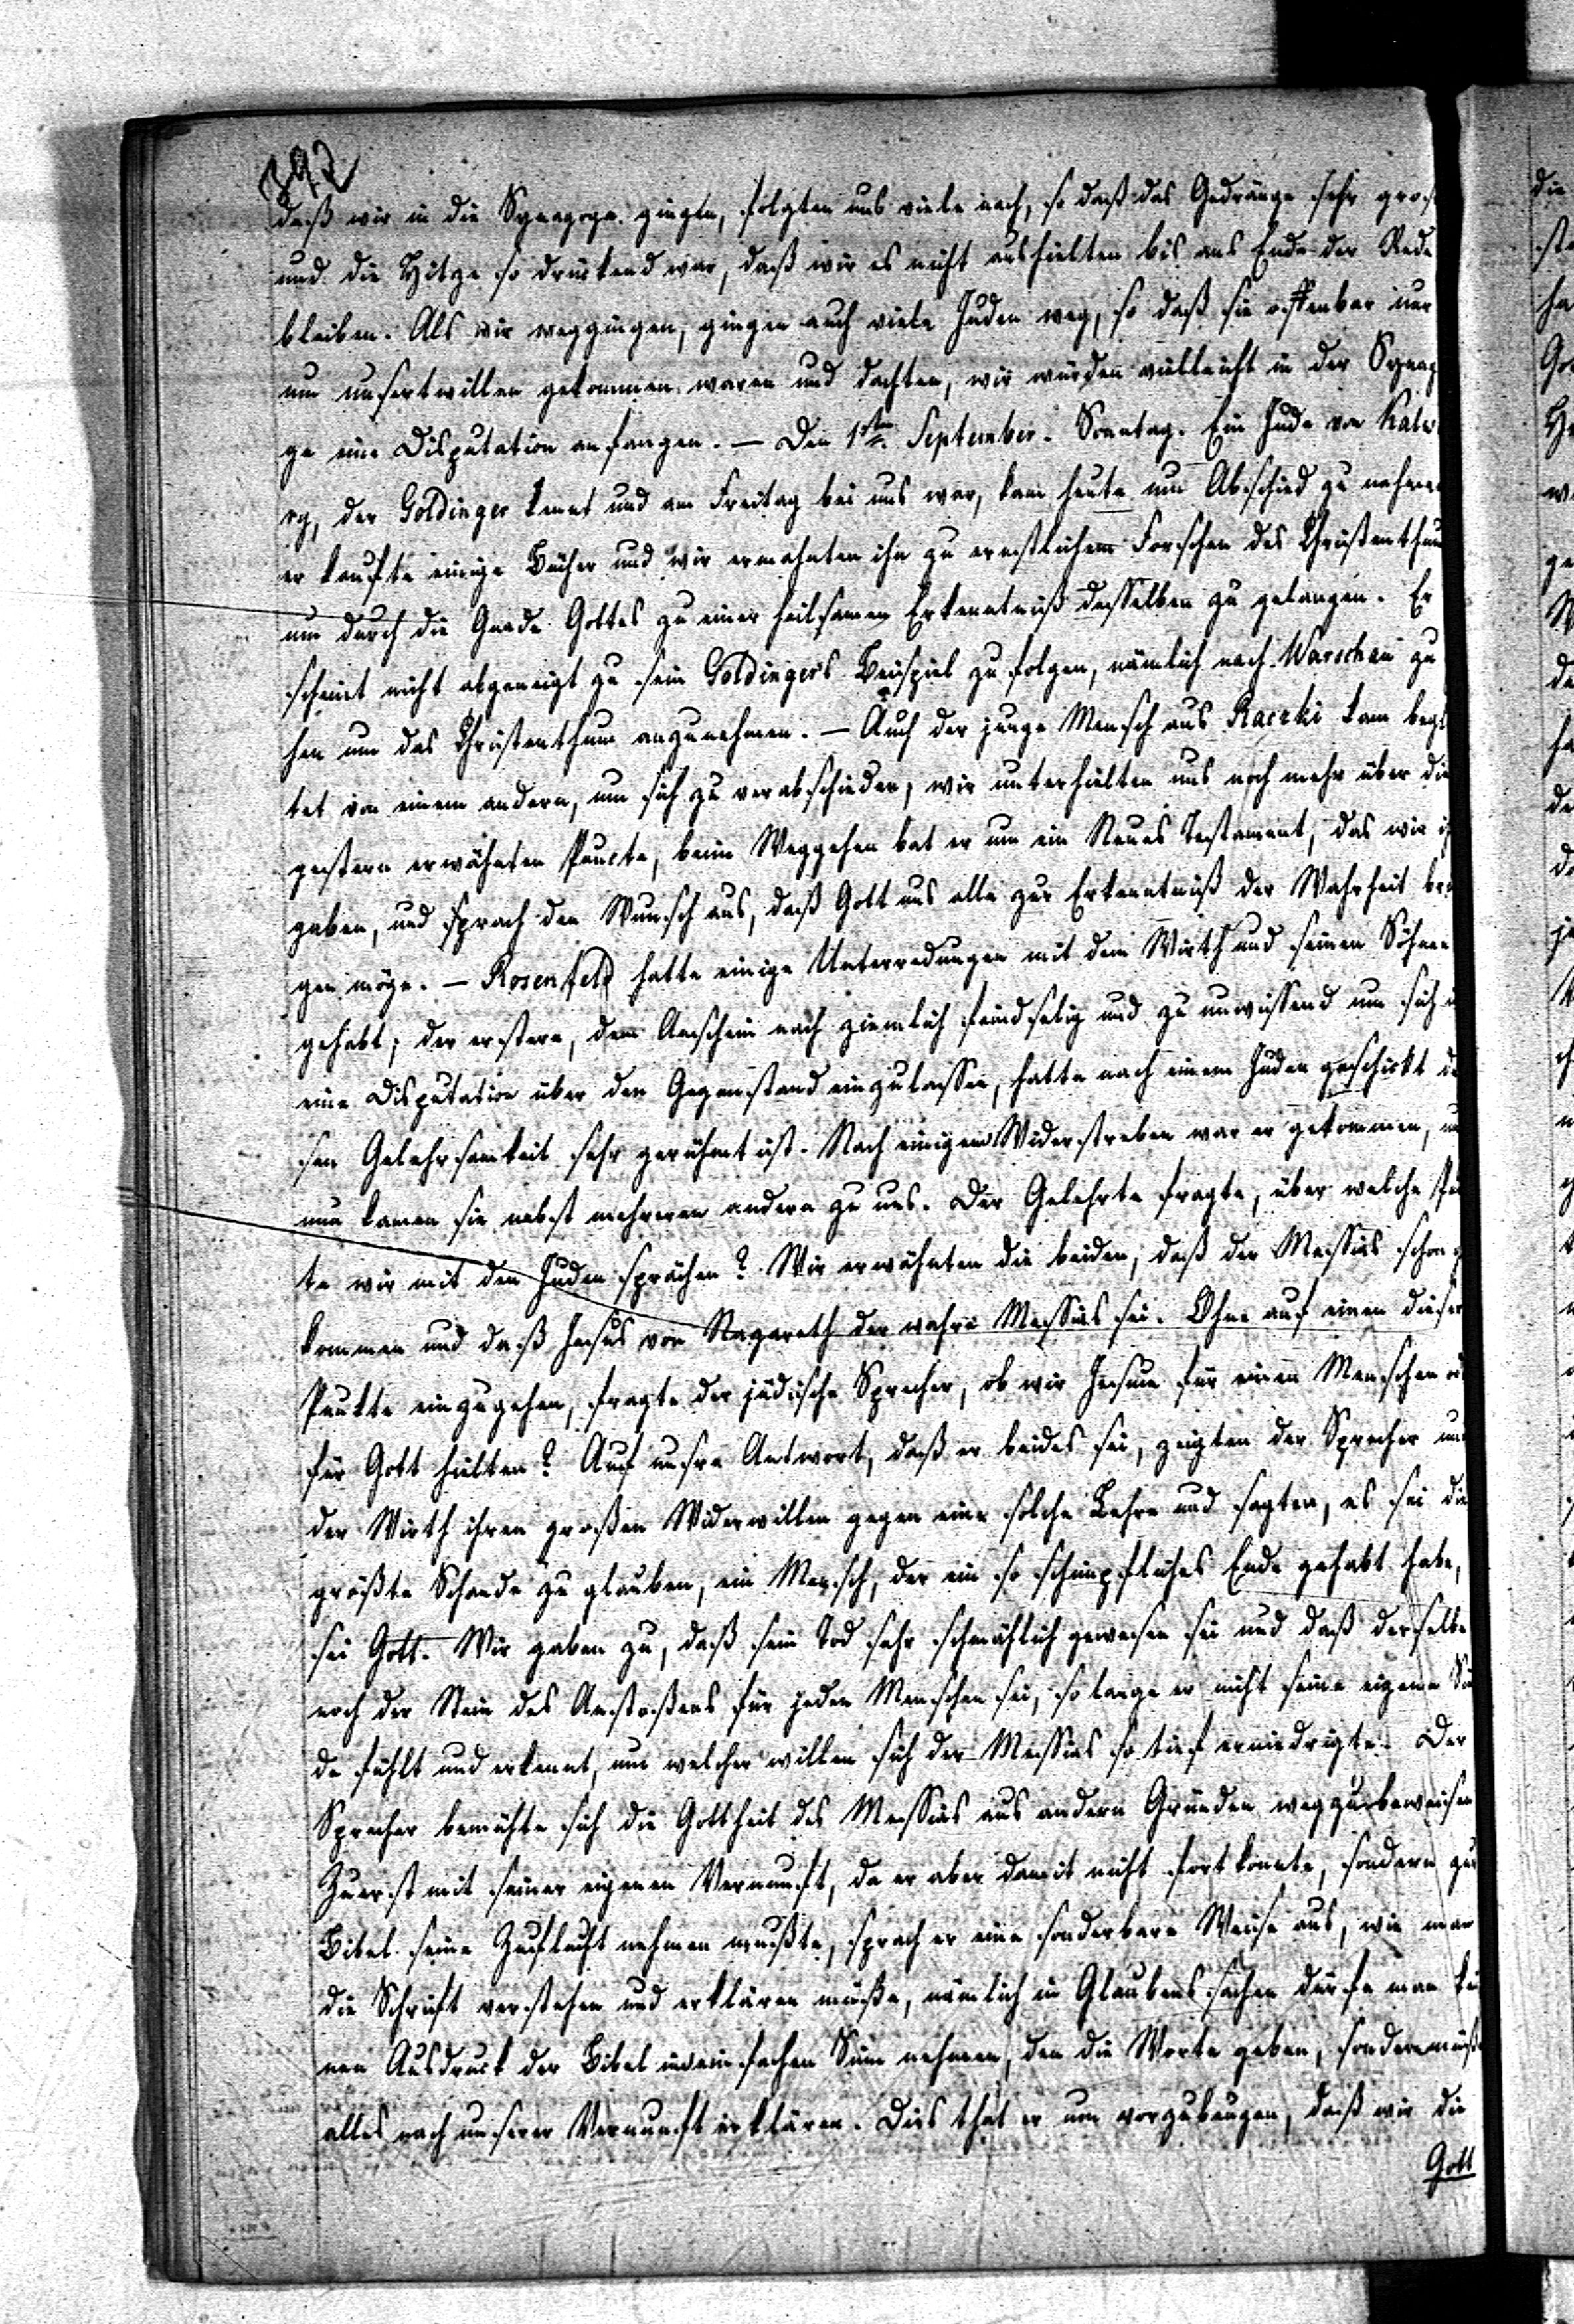 392
daß wir in die Synagoge gingen, folgten uns viele nach, so daß das Gedränge sehr gros
und die Hitze so drückend war, daß wir es nicht aushielten bis ans Ende der Rede
bleiben. Als wir weggingen, gingen auch viele Juden weg, so daß sie offenbar nur
um unsertwillen gekommen waren und dachten, wir würden vielleicht in der Synag
ge eine Disputation anfangen. — Den 1sten September. Sonntag. Ein Jude von Kalw
ry, der Goldinger kennt und am Freitag bei uns war, kam heute um Abschied zu nehme
er kaufte einige Bücher und wir ermahnten ihn zu ernstlichem Forschen des Christenthum
um durch die Gnade Gottes zu einer heilsamen Erkenntniß desselben zu gelangen. Er
scheint nicht abgeneigt zu sein Goldinger's Beispiel zu folgen, nämlich nach Warschau zu
hen um das Christenthum anzunehmen. — Auch der junge Mensch aus Raczki kam begl
tet von einem andern, um sich zu verabschieden, wir unterhielten uns noch mehr über die
gestern erwähnten Puncte, beim Weggehen bat er um ein Neues Testament, das wir i
gaben, und sprach den Wunsch aus, daß Gott uns alle zur Erkenntniß der Wahrheit br
gen möge. — Rosenfeld hatte einige Unterredungen mit dem Wirth und seinen Söhnen
gehabt; der erstere, dem Anschein nach ziemlich feindselig und zu unwissend um sich i
eine Disputation über den Gegenstand einzulassen, hatte nach einem Juden geschickt de
sen Gelehrsamkeit sehr gerühmt ist. Nach einigem Widerstreben war er gekommen, u
nun kamen sie nebst mehreren andern zu uns. Der Gelehrte fragte, über welche Pu
te wir mit den Juden sprächen? Wir erwähnten die beiden, daß der Messias schon g
kommen und daß Jesus von Nazareth der wahre Messias sei. Ohne auf einen dieser
Punkte einzugehen, fragte der jüdische Sprecher, ob wir Jesum für einen Menschen o
für Gott hielten? Auf unsre Antwort, daß er beides sei, zeigten der Sprecher und
der Wirth ihren großen Widerwillen gegen eine solche Lehre und sagten, es sei die
größte Schande zu glauben, ein Mensch, der ein so schimpfliches Ende gehabt habe,
sei Gott. Wir gaben zu, daß sein Tod sehr schmählich gewesen sei und daß derselbe
noch der Stein des Anstoßens für jeden Menschen sei, so lange er nicht seine eigene Sü
de fühlt und erkennt, um welcher willen sich der Messias so tief erniedrigte. Der
Sprecher bemühte sich die Gottheit des Messias aus andern Gründen wegzubeweisen
Zuerst mit seiner eigenen Vernunft, da er aber damit nicht fort konnte, sondern zur
Bibel seine Zuflucht nehmen mußte, sprach er eine sonderbare Weise aus, wie man
die Schrift verstehen und erklären müße, nämlich in Glaubenssachen dürfe man kei
nen Ausdruck der Bibel im einfachen Sinn nehmen, den die Worte geben, sondern müß
alles nach unserer Vernunft erklären. Dies that er um vorzubeugen, daß wir die
Gott